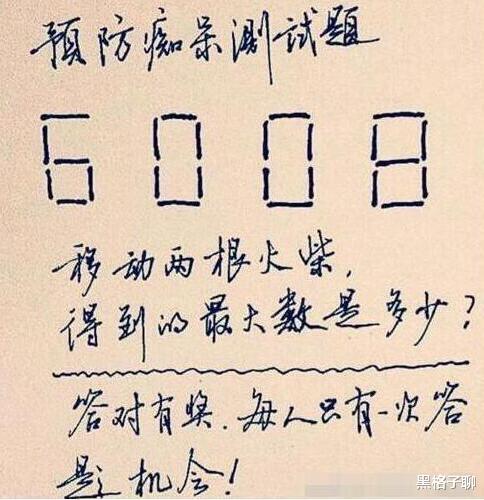 预防痴呆测试题
6008
移动两根火柴，
得到的最大数是多少？
答对有奖．每人只有一次答
题机会！
黑格子聊